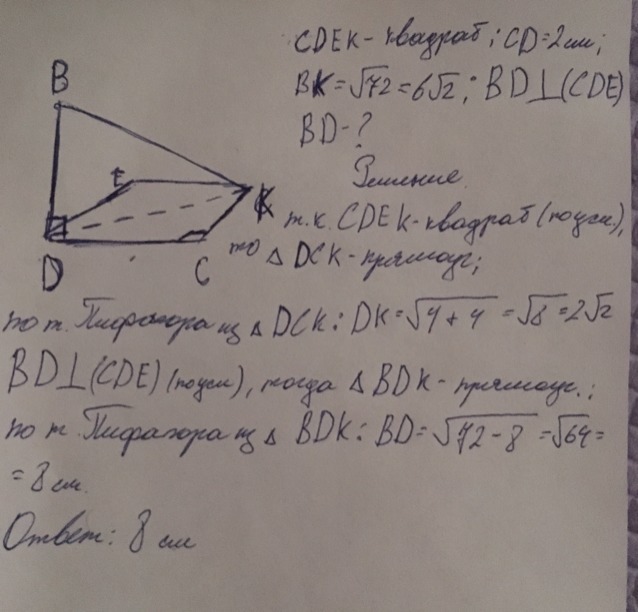 CDEK - квадрат; CD = 2см;
BK = √72 = 6√2; BD⊥(CDE)
BD - ?
Решение
B
E
K
D
C
т.к. CDEK - квадрат (по усл),
то △ DCK - прямоуг;
по т. Пифагора из △ DCK: DK = √4 + 4 = √8 = 2√2
BD⊥(CDE) (по усл), тогда △ BDK - прямоуг.;
по т. Пифагора из △ BDK: BD = √72 - 8 = √64 =
= 8 см.
Ответ: 8 см